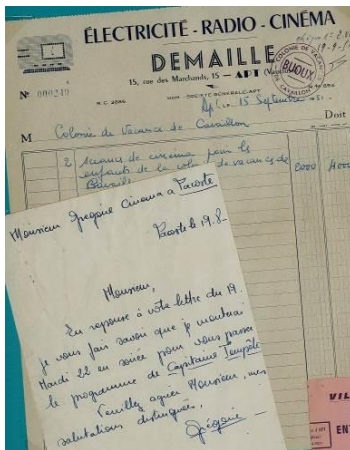 ÉLECTRICITÉ - RADIO - CINÉMA
DEMAILLE
15, rue des Marchands, 15 — APT
N° 000249
R.C. 2680
COLONIE DE VACANCES
BUOUX
CAVAILLON
Apt, le 15 Septembre 1951
Doit
M Colonie de Vacance de Cavaillon
2 séances de cinéma pour les
enfants de la colonie de vacances de
2000 4000
Monsieur Grégoire Cinéma à Lacoste
Lacoste le 19.8-
Monsieur,
En reponse à votre lettre du 17.
je vous fais savoir que je monterai
Mardi 22 en soirée pour vous passer
le programme de Capitaine Tempête
Veuillez agréer Monsieur, mes
salutations distinguées,
Grégoire
VIL
EN